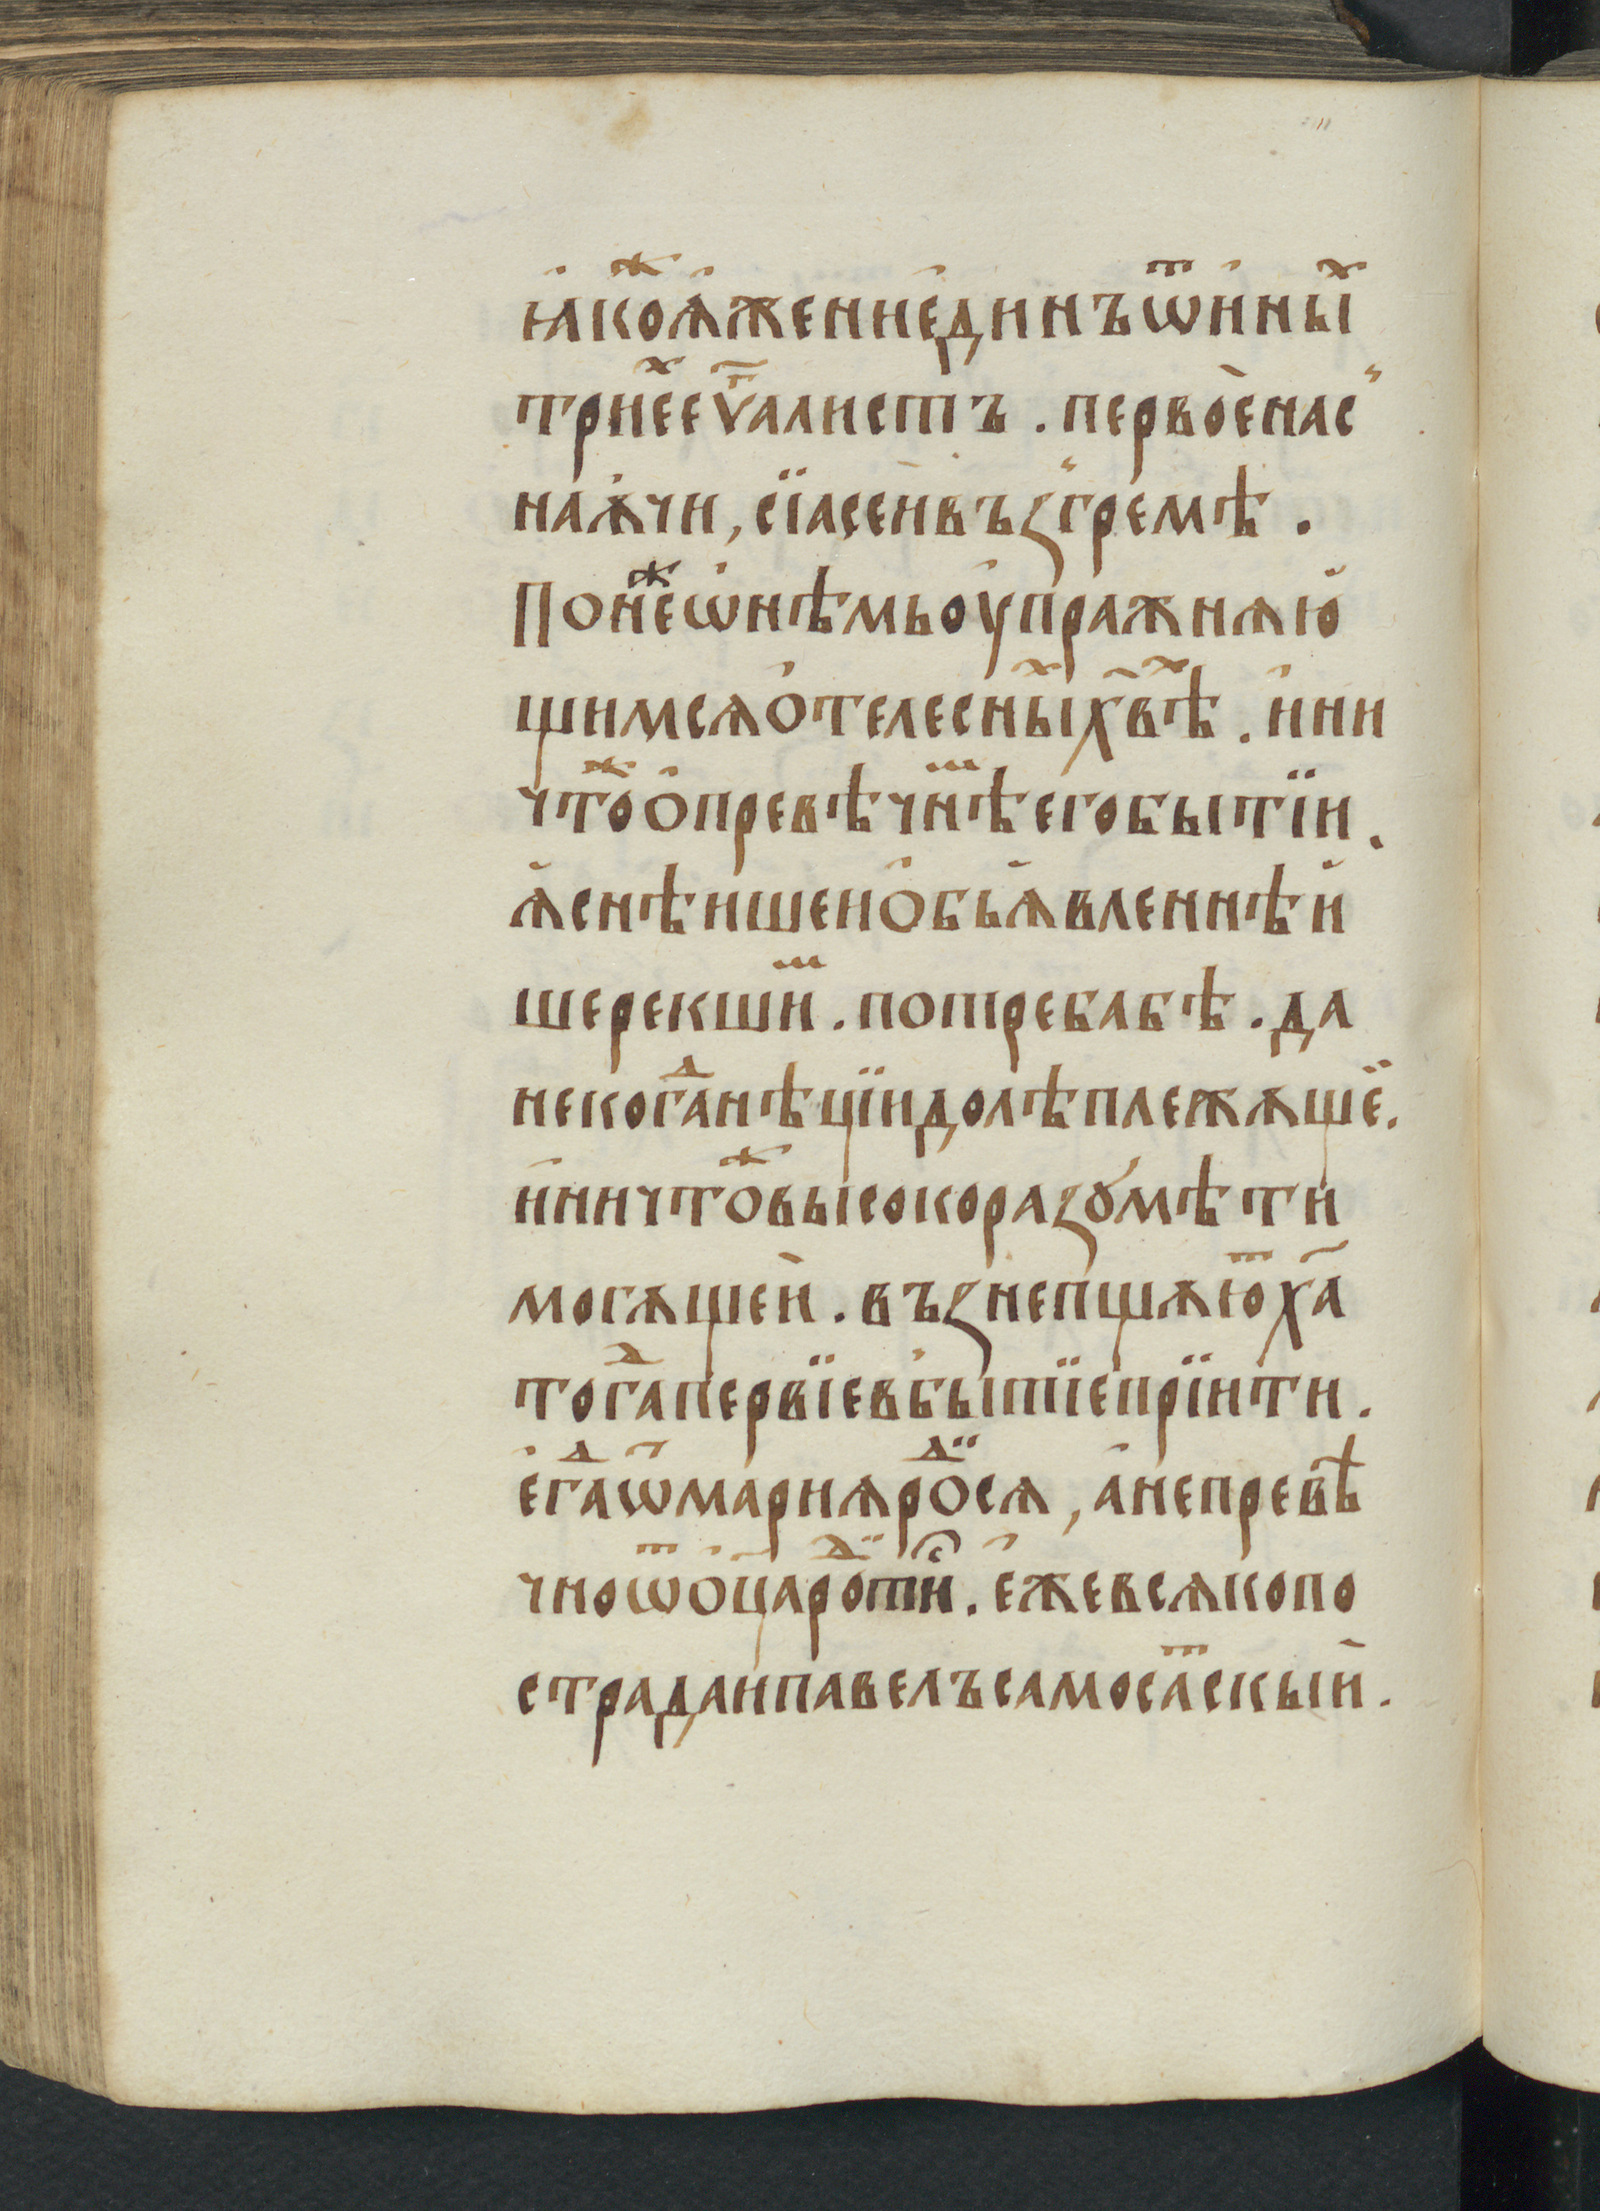 ꙗкоⷤѧ҆же ни е҆динъ ѿ и҆ныⷯ
триⷯ е҆еѵⷢ҇алистъ . первѡ̀е насъ
наѧ҆чи , сїа сеи въꙁгремѣ .
Понеⷤ ѡ҆ нѣмь ѹ҆пражнѧю҆
щимсѧ о҆ телесныⷯ х҃вѣⷯ . и҆ ни
чтоⷤ о҆ превѣчнⷨѣ его бытїи .
ѧ҆снѣише и о҆бьѧ҆вленнѣи
ше рекшиⷨ . потреба бѣ . да
не когаⷣ нѣцїи долѣ плежѧще҆ .
и҆ ничтоⷤ высоко раꙁꙋмѣти
могѧщеи . въꙁнепщѧюⷮ х҃а
тогаⷣ первїе в бытїе прїити .
е҆гаⷣ ѿ марнѧ роⷣсѧ , а҆ не превѣ
чно ѿ о҆ц҃а роⷣстⷭ҇и . е҆же всѧко по
страда и павелъ самосаⷮскыи .